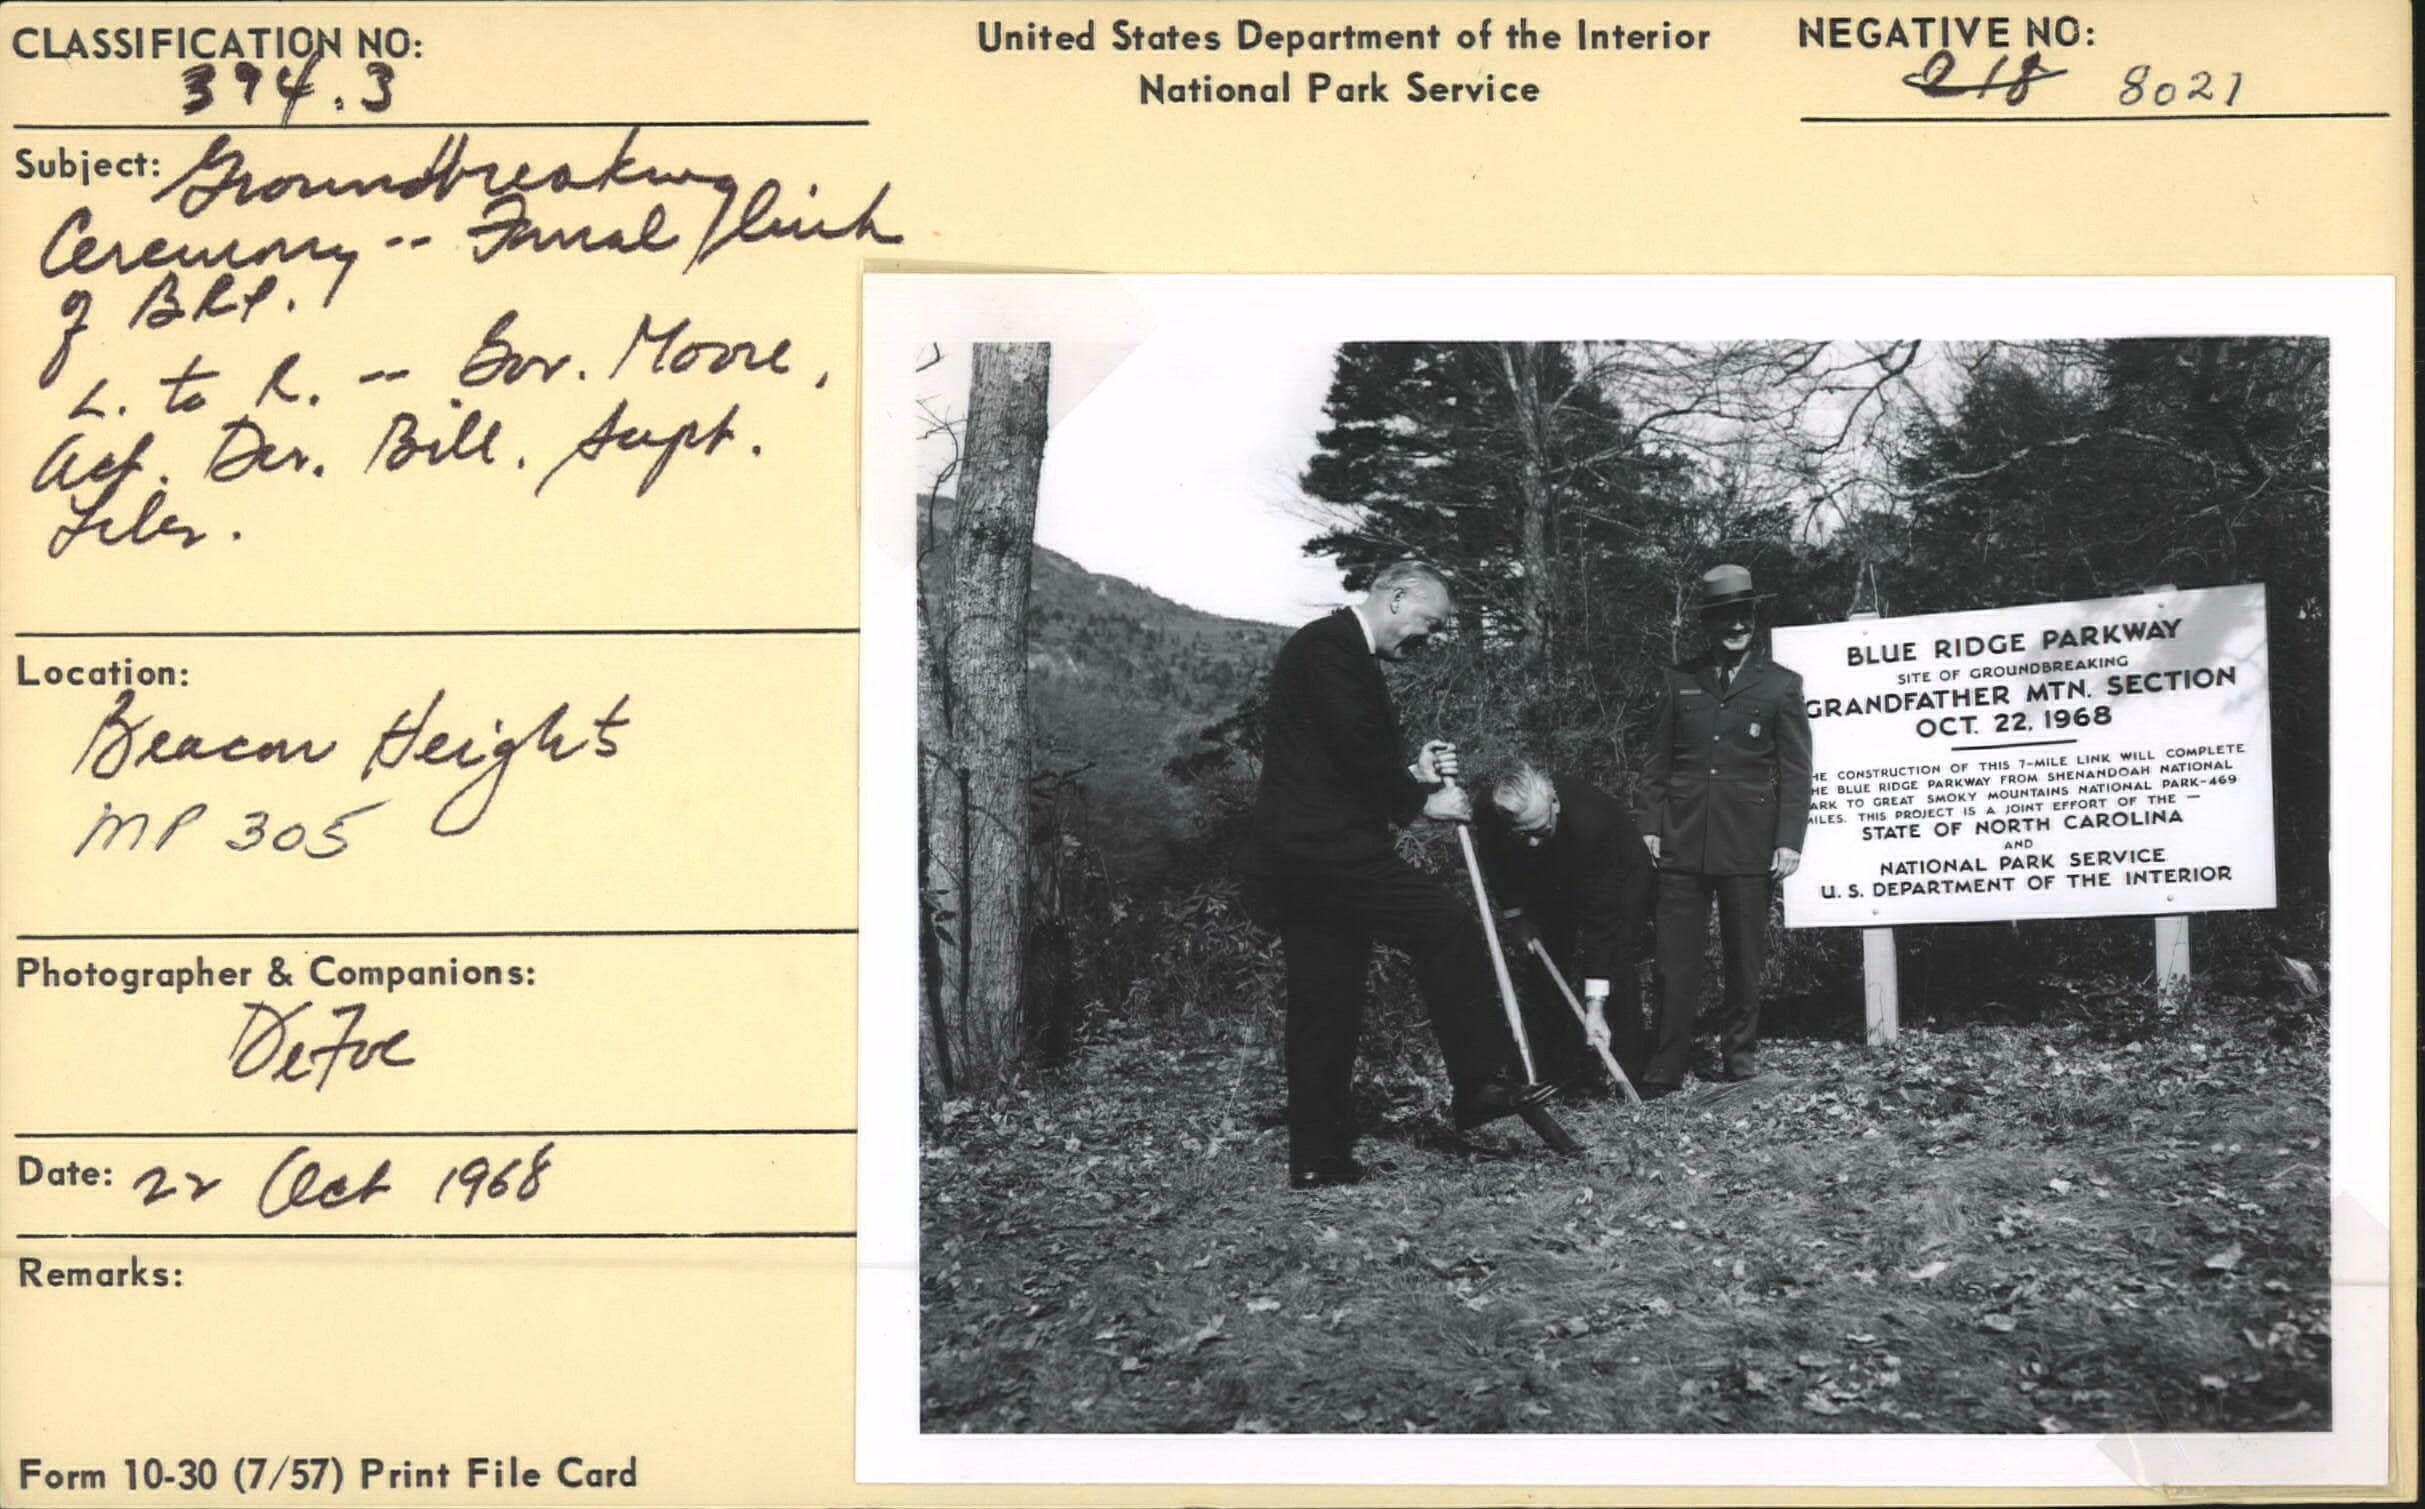 CLASSIFICATION NO:
394.3
United States Department of the Interior
National Park Service
NEGATIVE NO:
218 8021
Subject: Groundbreaking
Ceremony -- Final link
of BRP.
L. to R. -- Gov. Moore,
Act. Dir. Bill, Supt.
Liles.
Location:
Beacon Heights
MP 305
Photographer & Companions:
DeFoe
Date: 22 Oct 1968
Remarks:
Form 10-30 (7/57) Print File Card
BLUE RIDGE PARKWAY
SITE OF GROUNDBREAKING
GRANDFATHER MTN. SECTION
OCT. 22, 1968
HE CONSTRUCTION OF THIS 7-MILE LINK WILL COMPLETE
HE BLUE RIDGE PARKWAY FROM SHENANDOAH NATIONAL
ARK TO GREAT SMOKY MOUNTAINS NATIONAL PARK-469
MILES. THIS PROJECT IS A JOINT EFFORT OF THE —
STATE OF NORTH CAROLINA
AND
NATIONAL PARK SERVICE
U. S. DEPARTMENT OF THE INTERIOR